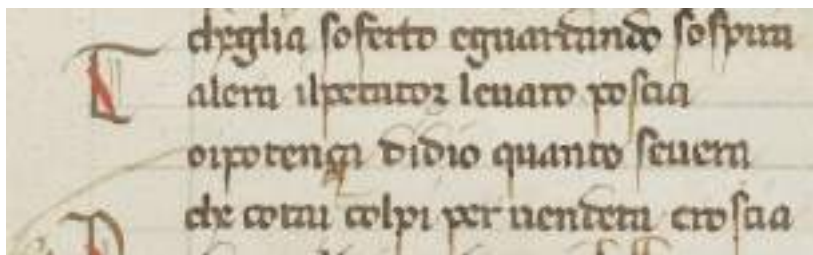 cheglia soferto eguardando sospira
T alera ilpecator leuato poscia
oipotenza didio quanto seuera
che cotai colpi per uendeta croscia